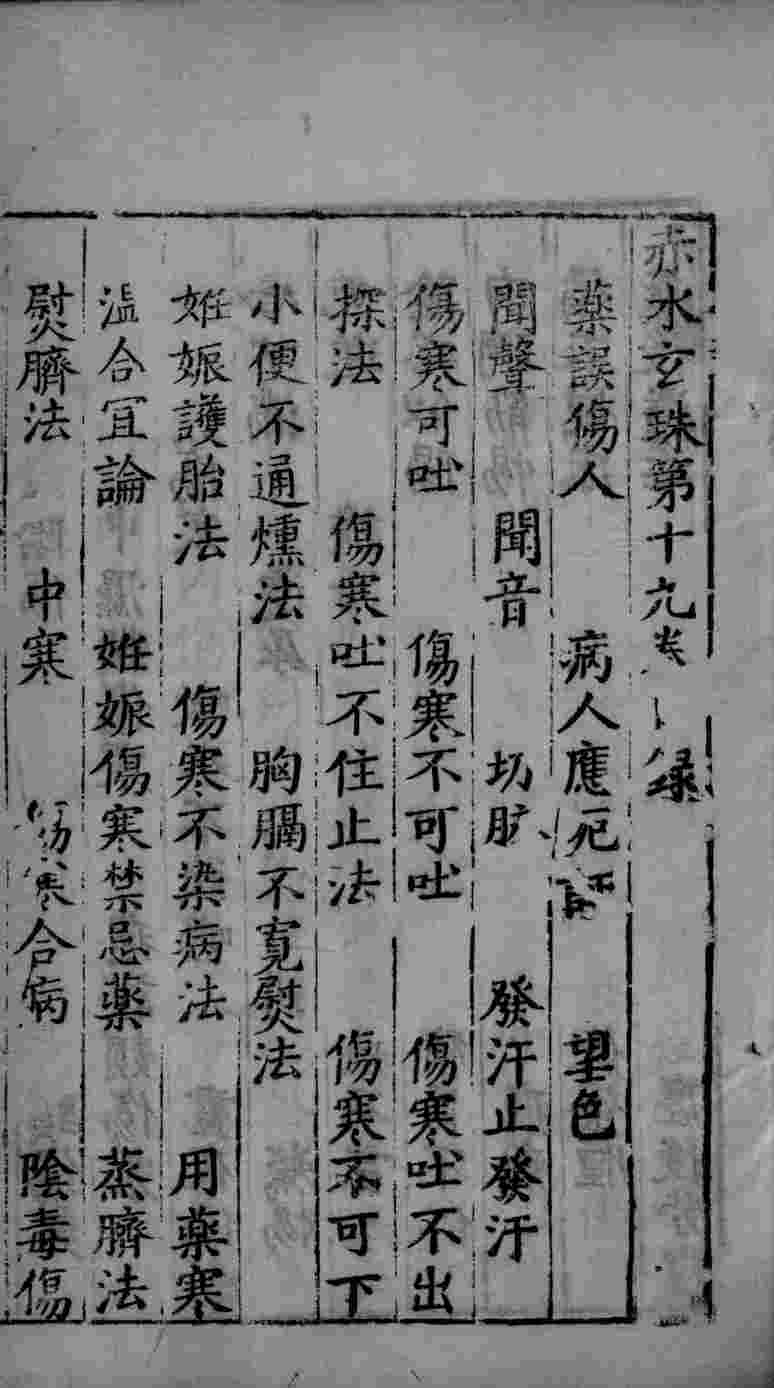 赤水玄珠第十九卷目録
藥誤傷人　病人應死訣　望色
聞聲　聞音　切脉　發汗止發汗
傷寒可吐　傷寒不可吐　傷寒吐不出
探法　傷寒吐不住止法　傷寒不可下
小便不通燻法　胸膈不寛熨法
妊娠護胎法　傷寒不染病法　用藥寒
温合宜論　妊娠傷寒禁忌藥　蒸臍法
熨臍法　中寒　傷寒合病　陰毒傷